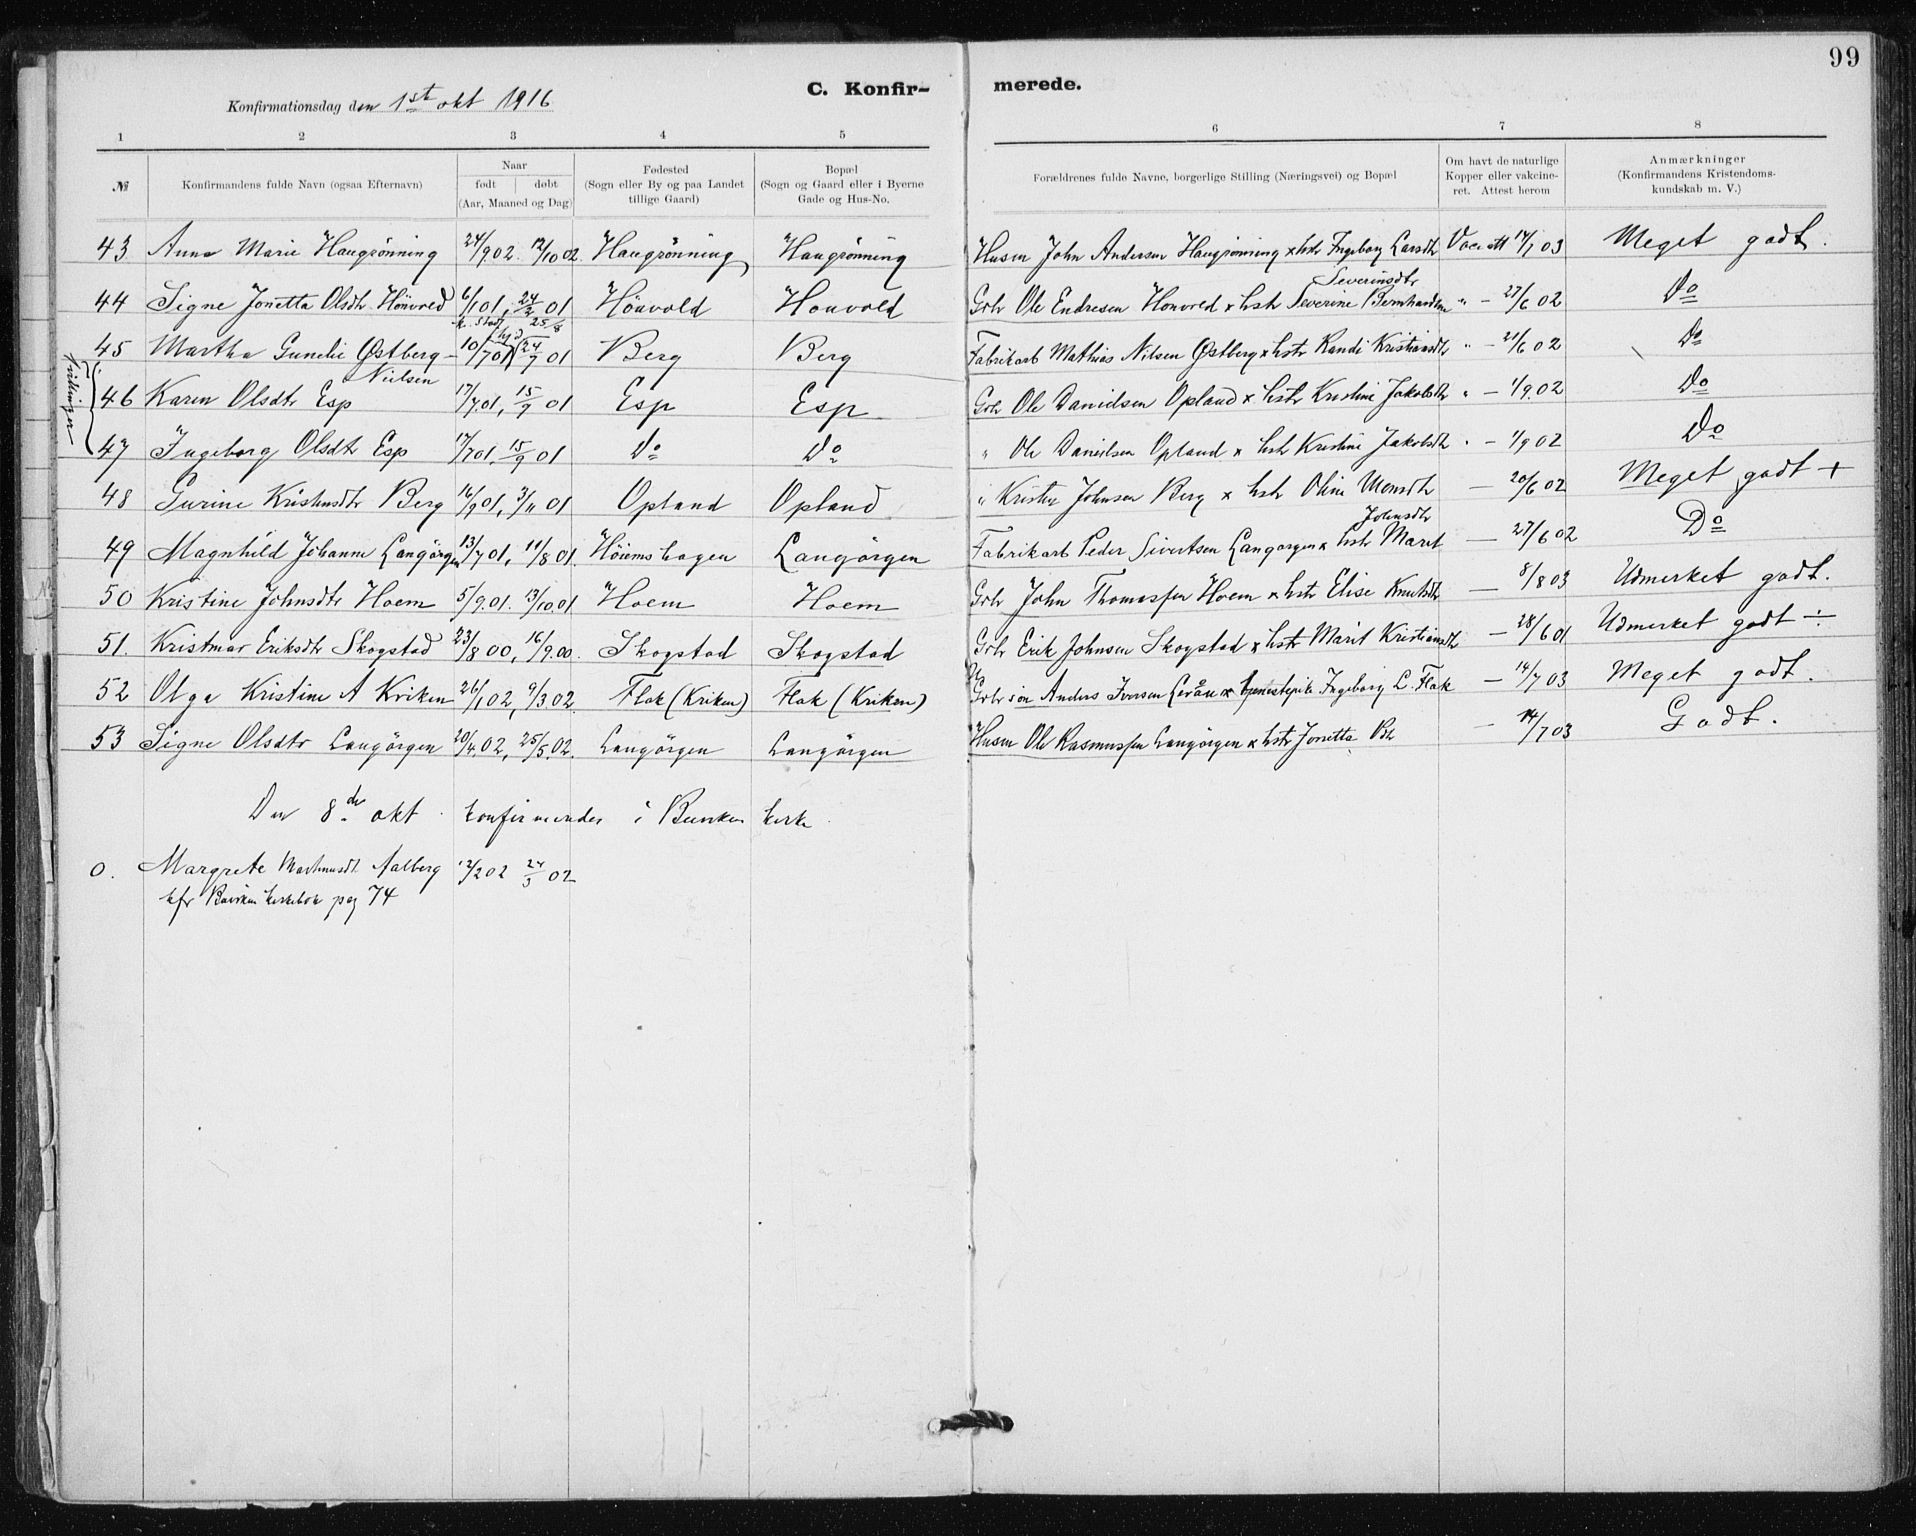 99
C. Konfir- merede.
Konfirmationsdag den 1ste okt 1916
1 2 3 4 5 6 7 8
№ Konfirmandens fulde Navn (ogsaa Efternavn) Naar født døbt (Aar, Maaned og Dag) Fødested (Sogn eller By og paa Landet tillige Gaard) Bopæl (Sogn og Gaard eller i Byerne Gade og Hus-No. Forældrenes fulde Navne, borgerlige Stilling (Næringsvei) og Bopæl Om havt de naturlige Kopper eller vakcineret. Attest herom Anmærkninger (Konfirmandens Kristendomskundskab m. V.)
43 Anna Marie Haugrönning 24/9 02. 12/10 02 Haugrönning Haugrönning Husm John Andersen Haugrönning x hstr Ingeborg Larsdtr Vac att 14/7 03 Meget godt.
44 Signe Jonetta Olsdtr Hönvold 6/1 01, 24/2 01 Hönvold Honvold Grbr Ole Endresen Honvold x hstr Severine Bernhardine Severinsdtr " - 27/6 02 Do
45 Martha Gunelie Østberg - Nielsen 10/7 01 24/9 01 Berg Berg Fabrikarb Mathias Nilsen Østberg x hstr Randi Kristiansdtr " - 21/6 02 Do
Tvillinger
46 Karen Olsdtr Esp 17/7 01, 15/9 01 Esp Esp Grbr Ole Danielsen Opland x hstr Kristine Jakobsdtr " - 1/9 02 Do
47 Ingeborg Olsdtr Esp 17/7 01, 15/9 01 Do Do " Ole Danielsen Opland x hstr Kristine Jakobsdtr " - 1/9 02 Do
48 Gurine Kristensdtr Berg 16/9 01, 3/11 01 Opland Opland " Johnsen Berg x hstr Oline Monsdtr - 20/6 02 Meget godt +
49 Magnhild Johanne Langörgen 13/7 01, 11/8 01. Höiemshagen Langörgen Fabrikarb Peder Sivertsen Langorgen x hstr Marit Johnsdtr - 27/6 02 Do
50 Kristine Johnsdtr Hoem 5/9 01. 13/10 01 Hoem Hoem Grbr John Thomassen Hoem x hstr Elise Knutsdtr - 8/8 03 Udmerket godt.
51. Eriksdtr Skogstad 23/8 00, 16/9 00. Skogstad Skogstad Grbr Erik Johnsen Skogstad x hstr Marit Kristiansdtr - 28/6 01 Udmerket godt ÷
52 Olga Kristine A Kriken 26/1 02, 9/3 02. Flak (Kriken) Flak (Kriken) Grbr sön Anders Iversen x tjenestepike Ingeborg L. Flak - 14/7 03 Meget godt.
53 Signe Olsdtr Langörgen 20/4 02, 25/5 02. Langörgen Langörgen Husm Ole Rasmussen Langörgen x hstr Jonetta - 14/7 03 Godt.
Den 8de okt konfirmeredes i kirke
0. Margrete Martinusdtr Aalberg 12/2 02 02
kfr kirkebok pag 74